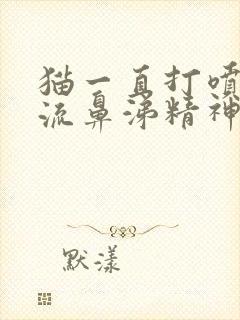 猫一直打喷
流鼻涕精神
默漾